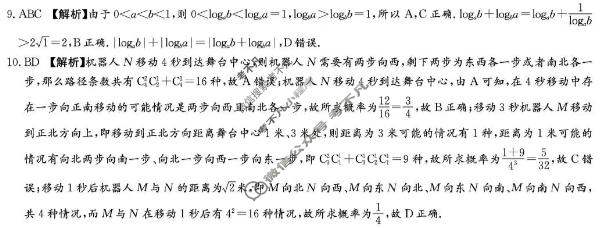 9. ABC 【解析】由于 0<a<b<1,则 0<logₐb<logₐa=1,log_b a>log_b b=1,所以 A,C 正确. logₐb+log_b a=logₐb+1/logₐb
>2√1=2,B 正确. |logₐb|+|log_b a|=|logₐb+log_b a|,D 错误.
10. BD 【解析】机器人 N 移动 4 秒到达舞台中心,则机器人 N 需要有两步向西,剩下两步为东西各一步或者南北各一
步,那么路径条数共有 C₄²C₂¹+C₄¹=16 种,故 A 错误;机器人 N 移动 4 秒到达舞台中心,由 A 可知,在 4 秒移动中存
在一步向正南移动的可能情况是两步向西且南北各一步,故所求概率为 12/16=3/4,故 B 正确;移动 3 秒机器人 M 移动
到正北方向上,即移动到正北方向距离舞台中心 1 米、3 米处,则距离为 3 米可能的情况有 1 种,距离为 1 米可能的
情况有向北两步向南一步、向北一步向西一步向东一步,即 C₃²C₁¹+C₃¹C₂¹C₁¹=9 种,故所求概率为 (1+9)/4³=5/32,故 C 错
误;移动 1 秒后机器人 M 与 N 的距离为√2米,即 M 向北 N 向西、M 向东 N 向北、M 向东 N 向南、M 向南 N 向西,
共 4 种情况,而 M 与 N 在移动 1 秒后有 4²=16 种情况,故所求概率为 1/4,故 D 正确.